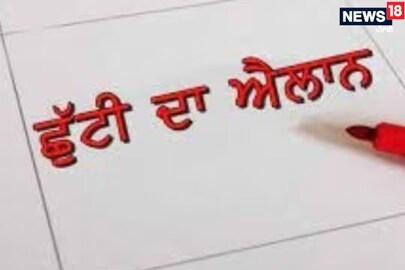 NEWS 18
ਛੁੱਟੀ ਦਾ ਐਲਾਨ